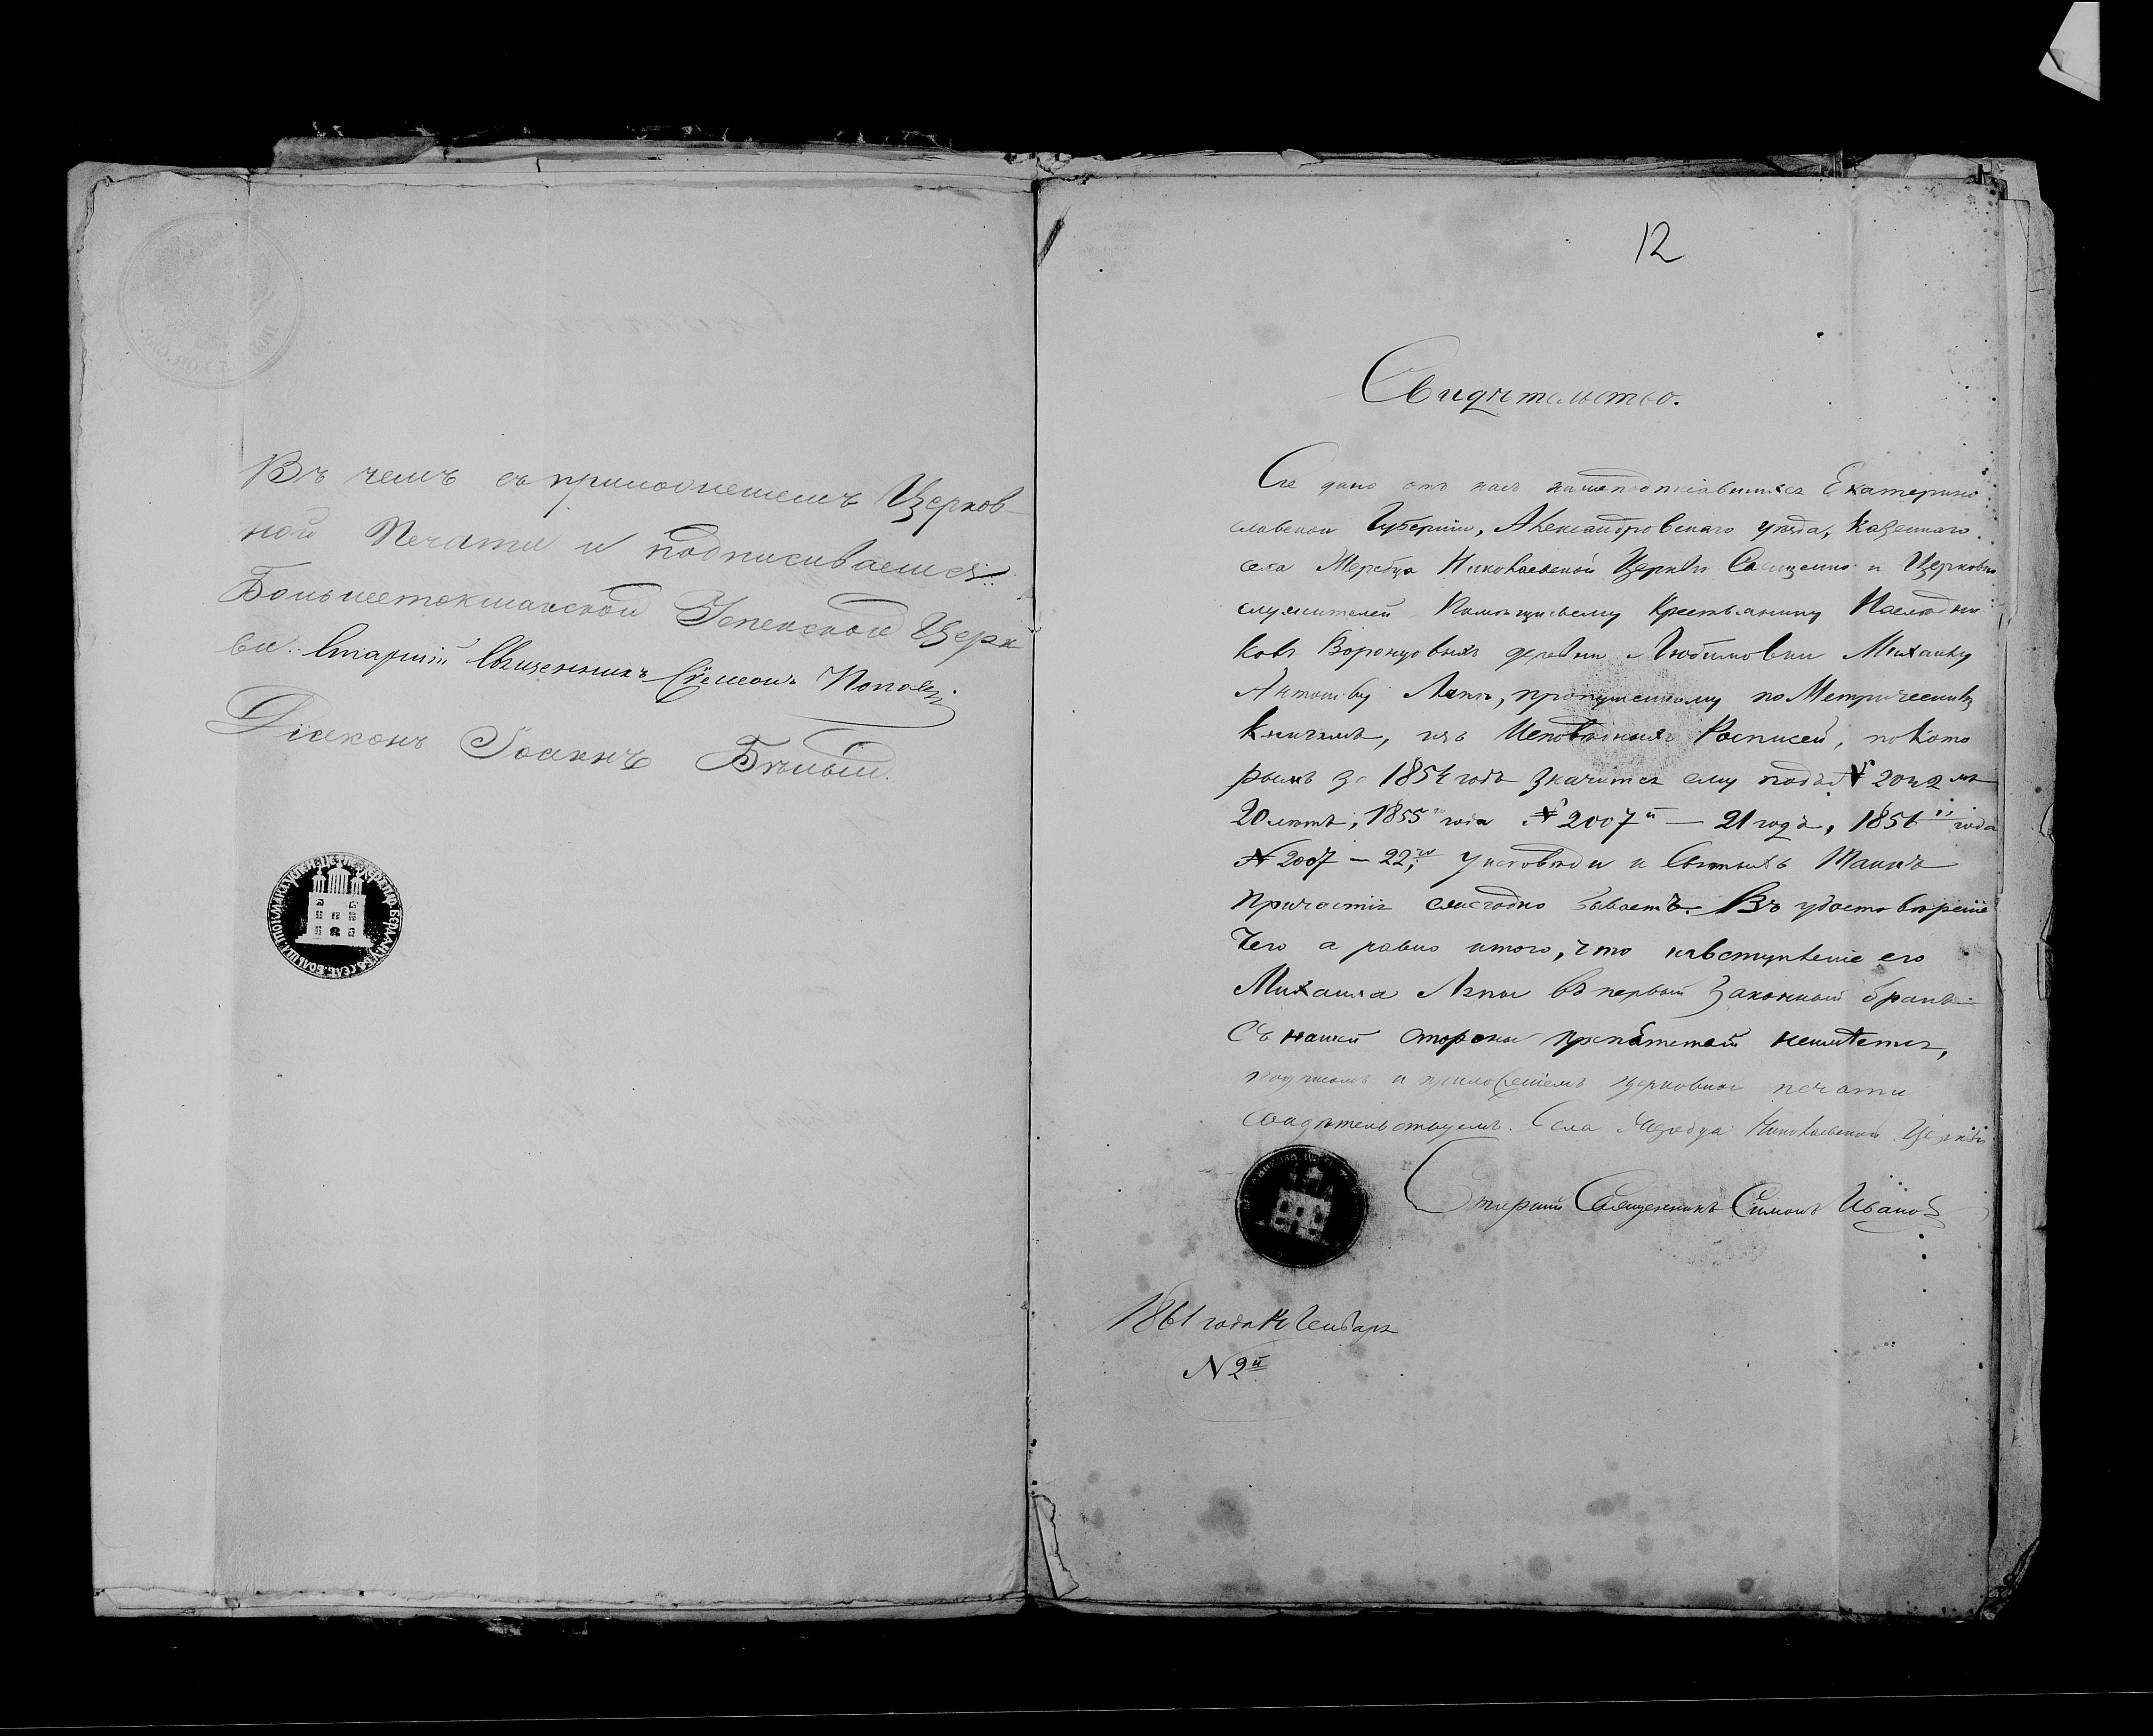 Въ чемъ съ приложенiемъ Церков-
ной Печати и подписываемся:
Большетокмакской Успенской Церк
ви. Старшiй Священникъ Сѵмеонъ Поповъ
Дiаконъ Iоаннъ Бѣлый.
12
Свидѣтельство.
Сiе дано отъ насъ нижеподписавшихся Екатерино
славской Губернiи, Александровскаго уѣзда, Казеннаго
села Жеребца Николаевской Церкви Священно и Церковно
служителей Помѣщичьему Крестьянину Наслѣдни
ковъ Воронцовыхъ деревни Любимовки Михаилу
Антонову Ляпѣ, пропущенному по Метрическимъ
Книгамъ, изъ Исповѣдныхъ Росписей, по Кото
рымъ за 1854 годъ значится ему подъ №
20 лѣтъ, 1855 года № 2007й — 21 годъ, 1856 года
№ 2007 — 22; У исповѣди и Святыхъ Таинъ
Причастiя ежегодно бываетъ. Въ удостовѣренiе
Чего а равно и того, что на вступленiе его
Михаила Ляпы въ первый Законный бракъ
Съ нашей Стороны препятствiй неимѣется,
подписомъ и приложенiемъ церковной печати
свидѣтельствуемъ. Села Жеребца Николаевской Церкви
Старшiй Священникъ Симонъ Ивановъ
1861 года Генваря
N 2й